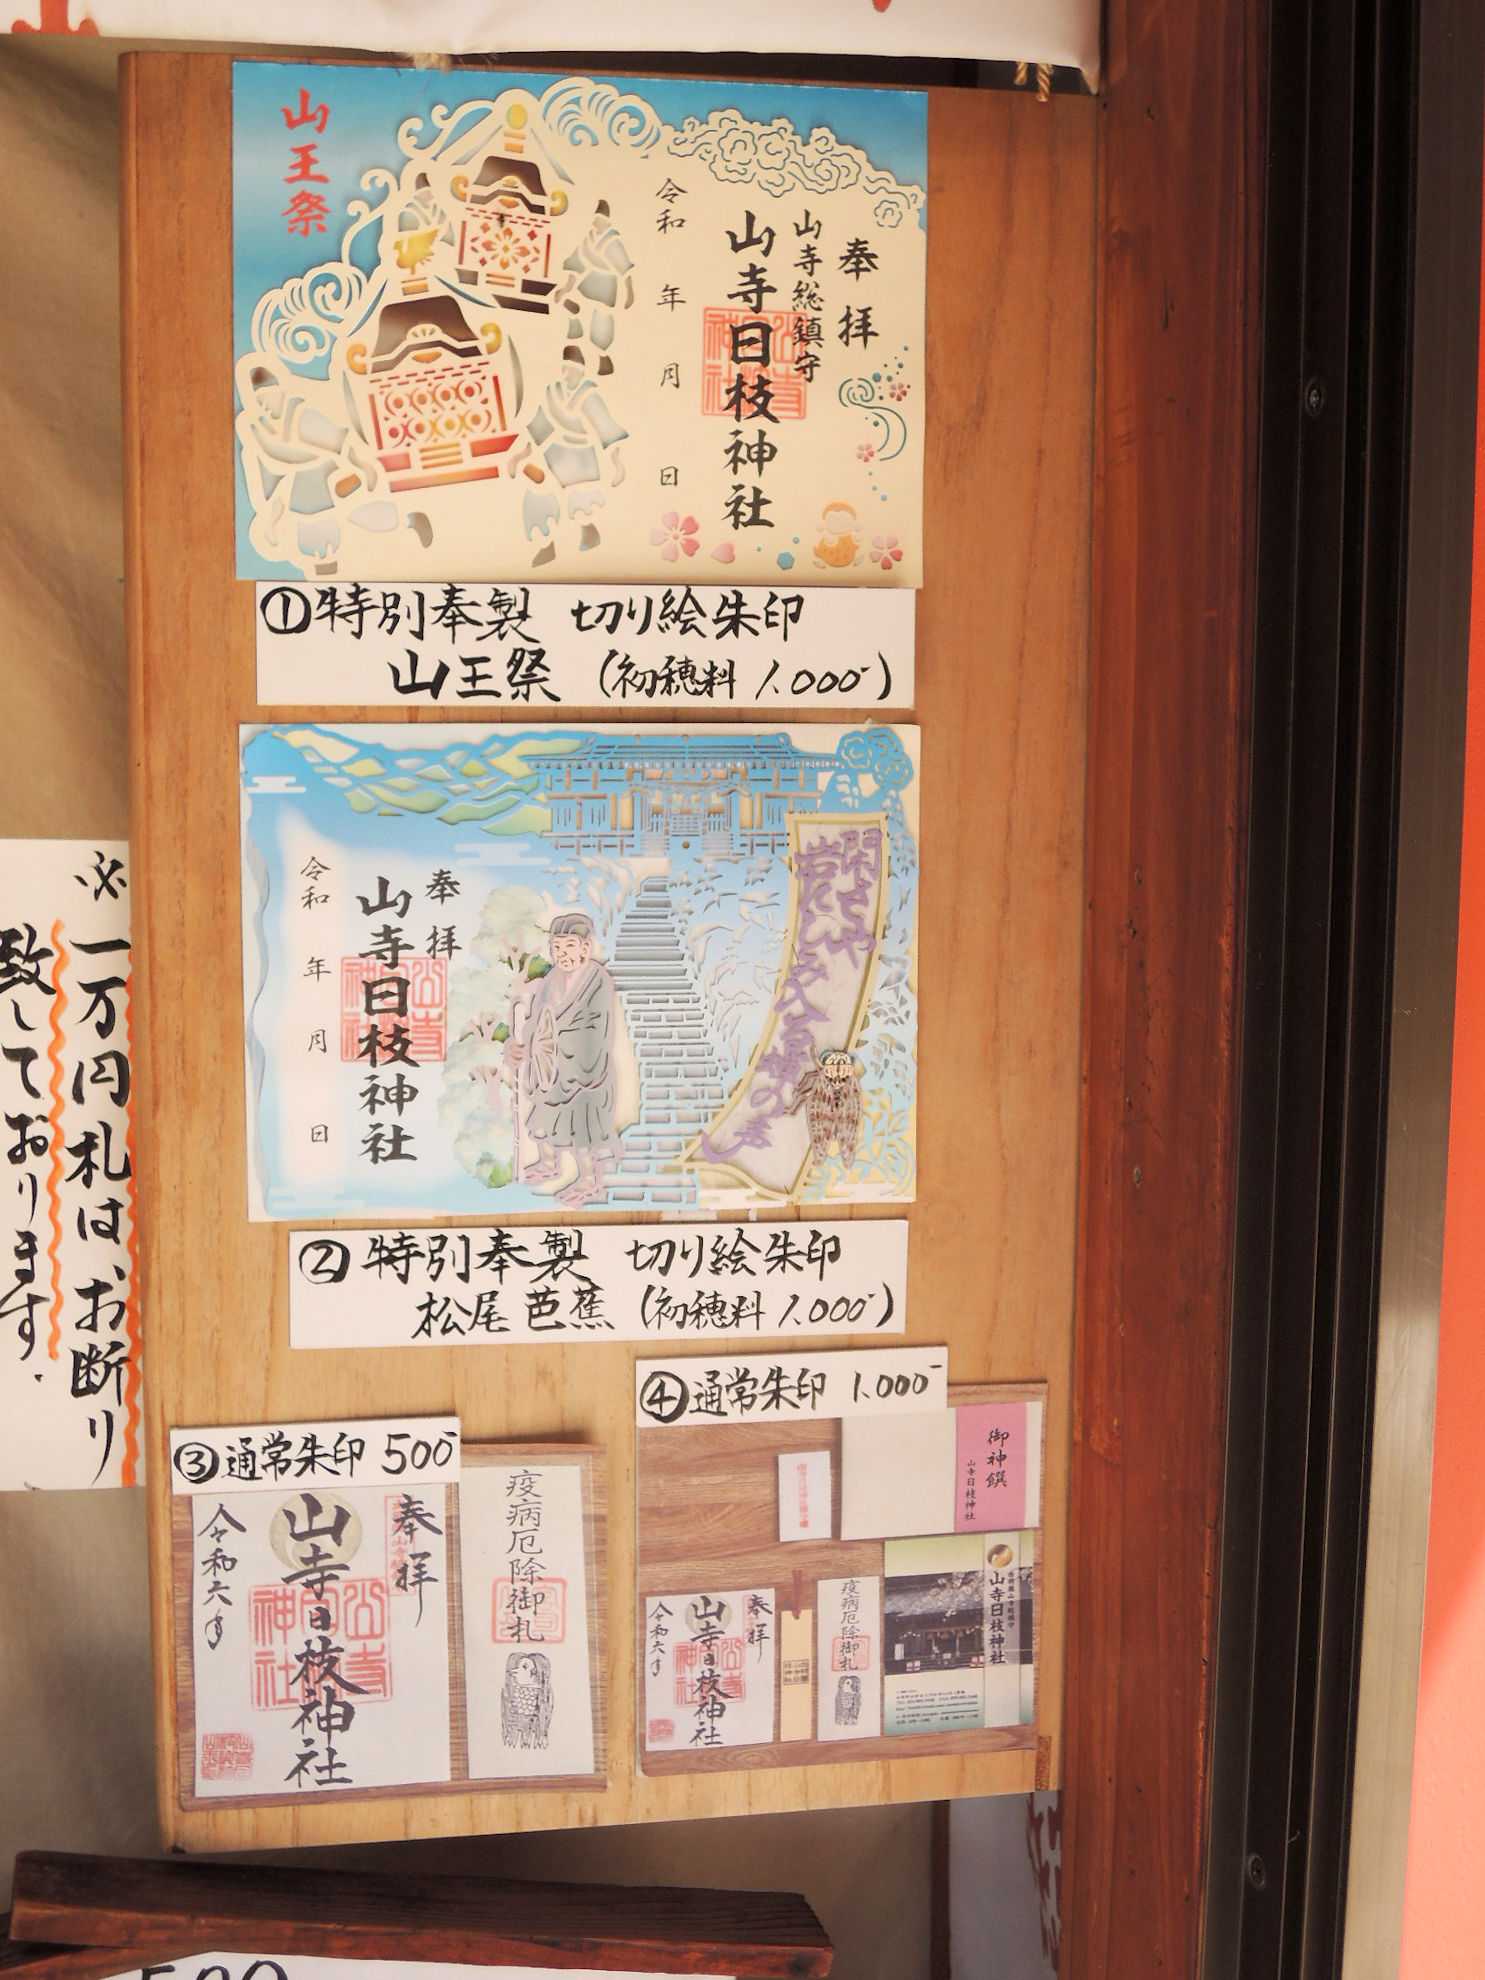 山王祭
奉拝
山寺総鎮守
山寺日枝神社
令和 年 月 日
①特別奉製 切り絵朱印
山王祭 (初穂料 1,000-)
閑さや
岩にしみ入る蝉の声
奉拝
山寺日枝神社
令和 年 月 日
②特別奉製 切り絵朱印
松尾芭蕉 (初穂料 1,000-)
③通常朱印 500-
奉拝
山寺日枝神社
令和六年
疫病厄除御札
④通常朱印 1,000-
御神饌
山寺日枝神社
奉拝
山寺日枝神社
令和六年
疫病厄除御札
山寺日枝神社
※一万円札は、お断り
致しております.
500